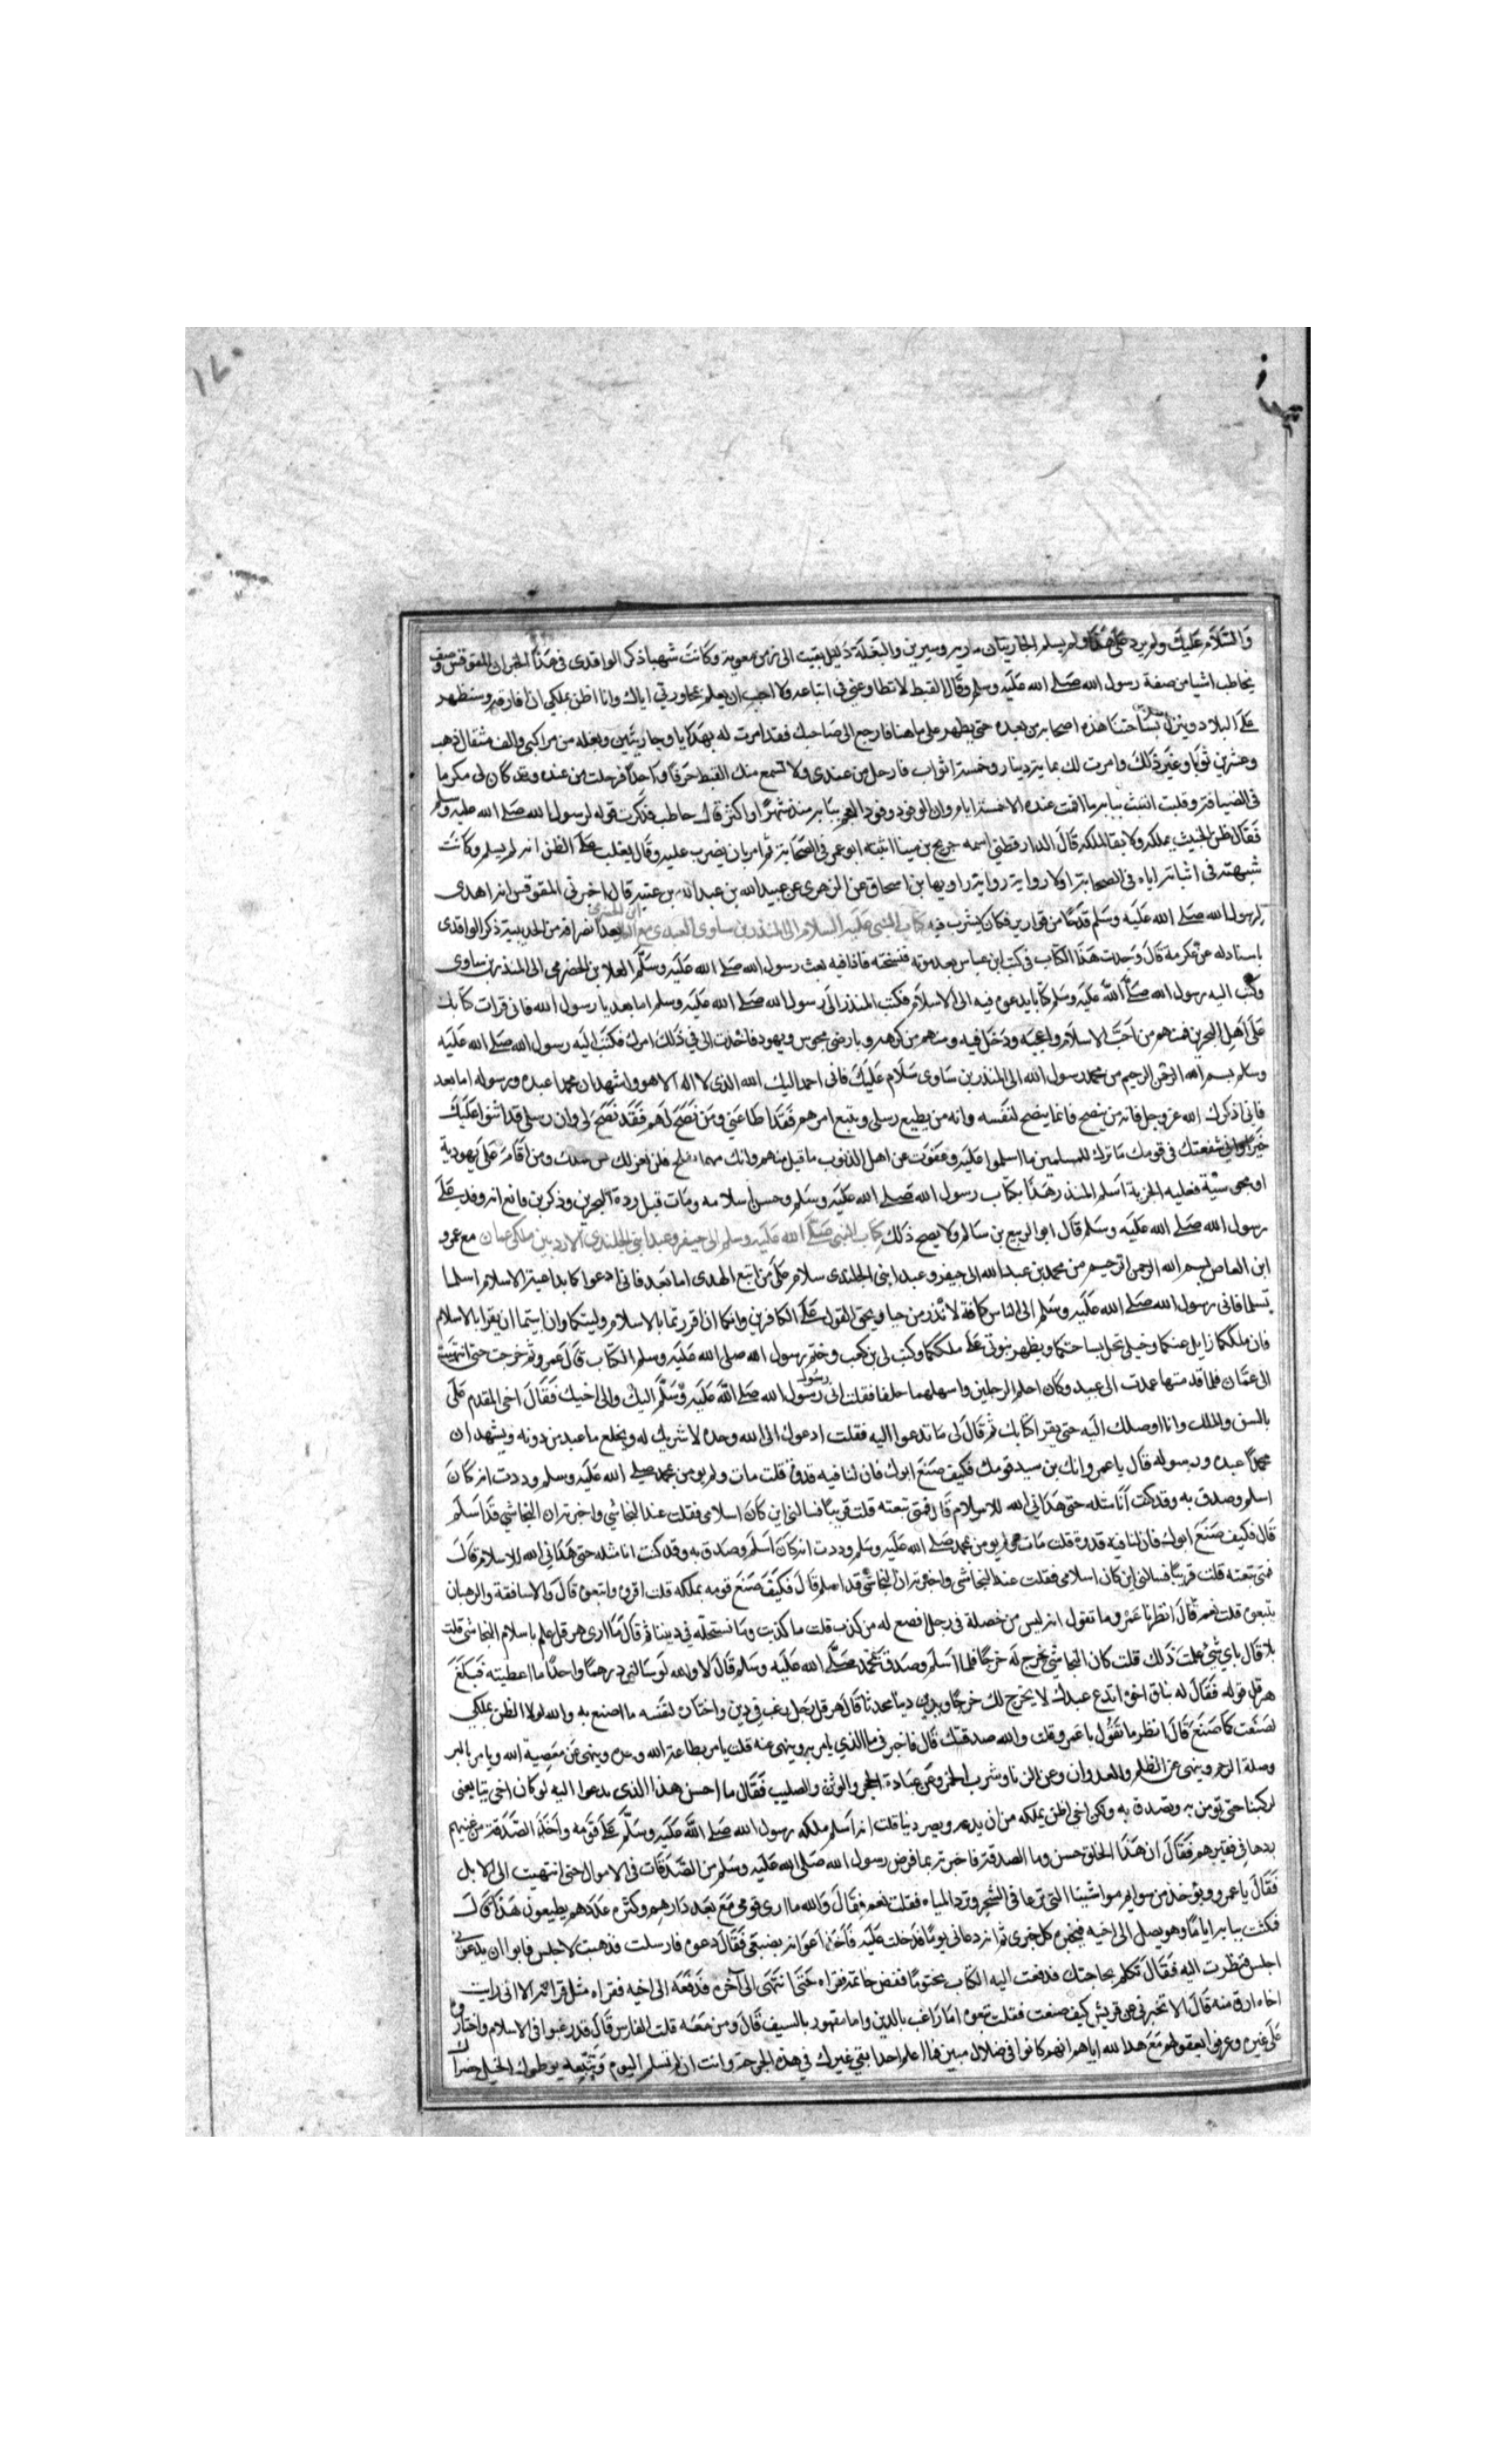 والسلام عليك ولم يزد على هذا ولم يسلم الجاريتان مارية وسيرين والبغلة دلدل بقيت الى زمن معوية وكانت شهبا ذكر الواقدى فى هذا الخبر ان المقوقس وصف
لحاطب اشيا من صفة رسول الله صلى الله عليه وسلم وقال القبط لا تطاوعنى فى اتباعه ولا احب ان يعلم بمحاورتي اياك وانا اظن بملكي ان افارقه وسيظهر
على البلاد وينزل بساحتنا هذه اصحابه من بعده حتى يظهر على ما هنا فارجع الى صاحبك فقد امرت له بهدايا وجاريتين وبغله من مراكبى والف مثقال ذهب
وعشرين ثوبا وغير ذلك وامرت لك بماية دينار وخمسة اثواب فارحل من عندى ولا تسمع منك القبط حرفا واحدا فرحلت من عنده وقد كان لى مكرما
فى الضيافة وقلت اللبث ببابه ما اقمت عنده الا خمسة ايام وان الوفود وفود العجم ببابه منذ شهرا او اكثر قال حاطب فذكرت قوله لرسول الله صلى الله عليه وسلم
فقال ظن الخبيث بملكه ولا بقا لملكه قال الدارقطني اسمه جريج بن مينا اثبته ابو عمر فى الصحابة ثم امر بان يضرب عليه وقال يغلب على الظن انه لم يسلم وكانت
شبهته فى اثباته اياه فى الصحابة اولا رواية رواها بن اسحاق عن الزهرى عن عبيد الله بن عبد الله بن عتبه قال اخبرنى المقوقس انه اهدى
لرسول الله صلى الله عليه وسلم قدحا من قوارير فكان يشرب فيه كتاب النبى عليه السلام الى المنذر بن ساوى العبدى مع العلا بعد انصرافه من الحديبية ذكر الواقدى
باسناد له عن عكرمة قال وجدت هذا الكتاب فى كتب ابن عباس بعد موته فنسخته فاذا فيه بعث رسول الله صلى الله عليه وسلم العلا بن الحضرمى الى المنذر بن ساوى
وكتب اليه رسول الله صلى الله عليه وسلم كتابا يدعوه فيه الى الاسلام فكتب المنذر الى رسول الله صلى الله عليه وسلم اما بعد يا رسول الله فانى قرات كتابك
على اهل البحرين فمنهم من احب الاسلام واعجبه ودخل فيه ومنهم من كرهه وبارضى مجوس ويهود فاحدث الى في ذلك امرك فكتب اليه رسول الله صلى الله عليه
وسلم بسم الله الرحمن الرحيم من محمد رسول الله الى المنذر بن ساوى سلام عليك فانى احمد اليك الله الذى لا اله الا هو واشهد ان محمدا عبده ورسوله اما بعد
فانى اذكرك الله عز وجل فانه من ينصح فانما ينصح لنفسه وانه من يطيع رسلى ويتبع امرهم فقد اطاعني ومن نصح لهم فقد نصح لى وان رسلى قد اثنوا عليك
خيرا وانى شفعتك فى قومك فاترك للمسلمين ما اسلموا عليه وعفوت عن اهل الذنوب فاقبل منهم وانك مهما تصلح فلن نعزلك عن عملك ومن اقام على يهودية
او مجوسية فعليه الجزية اسلم المنذر هذا بكتاب رسول الله صلى الله عليه وسلم وحسن اسلامه ومات قبل ردة البحرين وذكر بن قانع انه وفد على
رسول الله صلى الله عليه وسلم قال ابو الربيع بن سالم ولا يصح ذلك كتاب النبى صلى الله عليه وسلم الى جيفر وعبد ابنى الجلندى الازديين ملكى عمان مع عمرو
ابن العاص بسم الله الرحمن الرحيم من محمد بن عبد الله الى جيفر وعبد ابنى الجلندى سلام على من اتبع الهدى اما بعد فانى ادعوكما بداعية الاسلام اسلما
تسلما فانى رسول الله صلى الله عليه وسلم الى الناس كافة لانذر من حيا ويحق القول على الكافرين وانكما ان اقررتما بالاسلام وليتكما وان ابيتما ان تقرا بالاسلام
فان ملككما زايل عنكما وخيلى تحل بساحتكما ويظهر نبوتى على ملككما وكتب ابى بن كعب وختم رسول الله صلى الله عليه وسلم الكتاب قال عمرو ثم خرجت حتى انتهيت
الى عمان فلما قدمتها عمدت الى عبد وكان احلم الرجلين واسهلهما خلقا فقلت انى رسول رسول الله صلى الله عليه وسلم اليك والى اخيك فقال اخى المقدم على
بالسن والملك وانا اوصلك اليه حتى يقرا كتابك ثم قال لى ما تدعوا اليه فقلت ادعوك الى الله وحده لا شريك له ويخلع ما عبد من دونه ويشهد ان
محمدا عبده ورسوله قال يا عمرو انك بن سيد قومك فكيف صنع ابوك فان لنا فيه قدوة قلت مات ولم يومن بمحمد صلى الله عليه وسلم وددت انه كان
اسلم وصدق به وقد كنت انا مثله حتى هدانى الله للاسلام قال فمتى تبعته قلت قريبا فسالنى اين كان اسلامى فقلت عند النجاشي واخبرته ان النجاشي قد اسلم
قال فكيف صنع ابوك فان لنا فيه قدوة قلت مات ولم يومن بمحمد صلى الله عليه وسلم وددت انه كان اسلم وصدق به وقد كنت انا مثله حتى هدانى الله للاسلام قال
فمتى تبعته قلت قريبا فسالنى اين كان اسلامى فقلت عند النجاشى واخبرته ان النجاشى قد اسلم قال فكيف صنع قومه بملكه قلت اقروه واتبعوه قال والاساقفة والرهبان
يتبعوه قلت نعم قال انظر يا عمرو ما تقول انه ليس من خصلة فى رجل افضح له من كذب قلت ما كذبت وما نستحله في ديننا ثم قال ما ارى هرقل علم باسلام النجاشى قلت
بلا قال باي شي علمت ذلك قلت كان النجاشي يخرج له خرجا فلما اسلم وصدق بمحمد صلى الله عليه وسلم قال لا والله لو سالنى درهما واحدا ما اعطيته فبلغ
هرقل قوله فقال له نياق اخوه اتدع عبدك لا يخرج لك خرجا ويدين دينا محدثا قال هرقل رجل رغب في دين واختاره لنفسه ما اصنع به والله لولا الظن بملكي
لصنعت كما صنع قال انظر ما تقول يا عمرو قلت والله صدقتك قال فاخبرنى ما الذي يامر به وينهى عنه قلت يامر بطاعة الله وينهى عن معصية الله ويامر بالبر
وصلة الرحم وينهى عن الظلم والعدوان وعن الزنا وشرب الخمر وعن عبادة الحجر والوثن والصليب فقال ما احسن هذا الذى يدعوا اليه لو كان اخى يتابعنى
لركبنا حتى نومن به ونصدق به ولكن اخي اظن بملكه من ان يدعه ويصير دنيا قلت انه اسلم ملكه رسول الله صلى الله عليه وسلم على قومه واخذ الصدقة من غنيهم
يردها في فقيرهم فقال ان هذا الخلق حسن وما الصدقة فاخبرته بما فرض رسول الله صلى الله عليه وسلم من الصدقات فى الاموال حتى انتهيت الى الابل
فقال يا عمرو ويوخذ من سوايم مواشينا التى ترعا فى الشجر وترد المياه فقلت نعم فقال والله ما ارى قومى مع بعد دارهم وكثره عددهم يطيعون هذا قال
فمكثت ببابه اياما وهو يصل الى اخيه فيخبره كل خبرى ثم انه دعانى يوما فدخلت عليه فاخذ اعوانه بضبعى فقال دعوه فارسلت فذهبت لاجلس فابوا ان يدعونى
اجلس فنظرت اليه فقال تكلم بحاجتك فدفعت اليه الكتاب مختوما ففض خاتمه فقراه حتى انتهى الى آخره فدفعه الى اخيه فقراه مثل قراته الا انى رايت
اخاه ارق منه قال الا تخبرنى عن قريش كيف صنعت فقلت تبعوه اما راغب بالدين واما مقهور بالسيف قال ومن معه قلت الناس قد رغبوا فى الاسلام واختاروه
على غيره وعرفوا بعقولهم مع هدا الله اياهم انهم كانوا فى ضلال مبين فما اعلم احدا بقي غيرك في هذه الحرجة وانت ان لم تسلم اليوم وتتبعه يوطوك الخيل